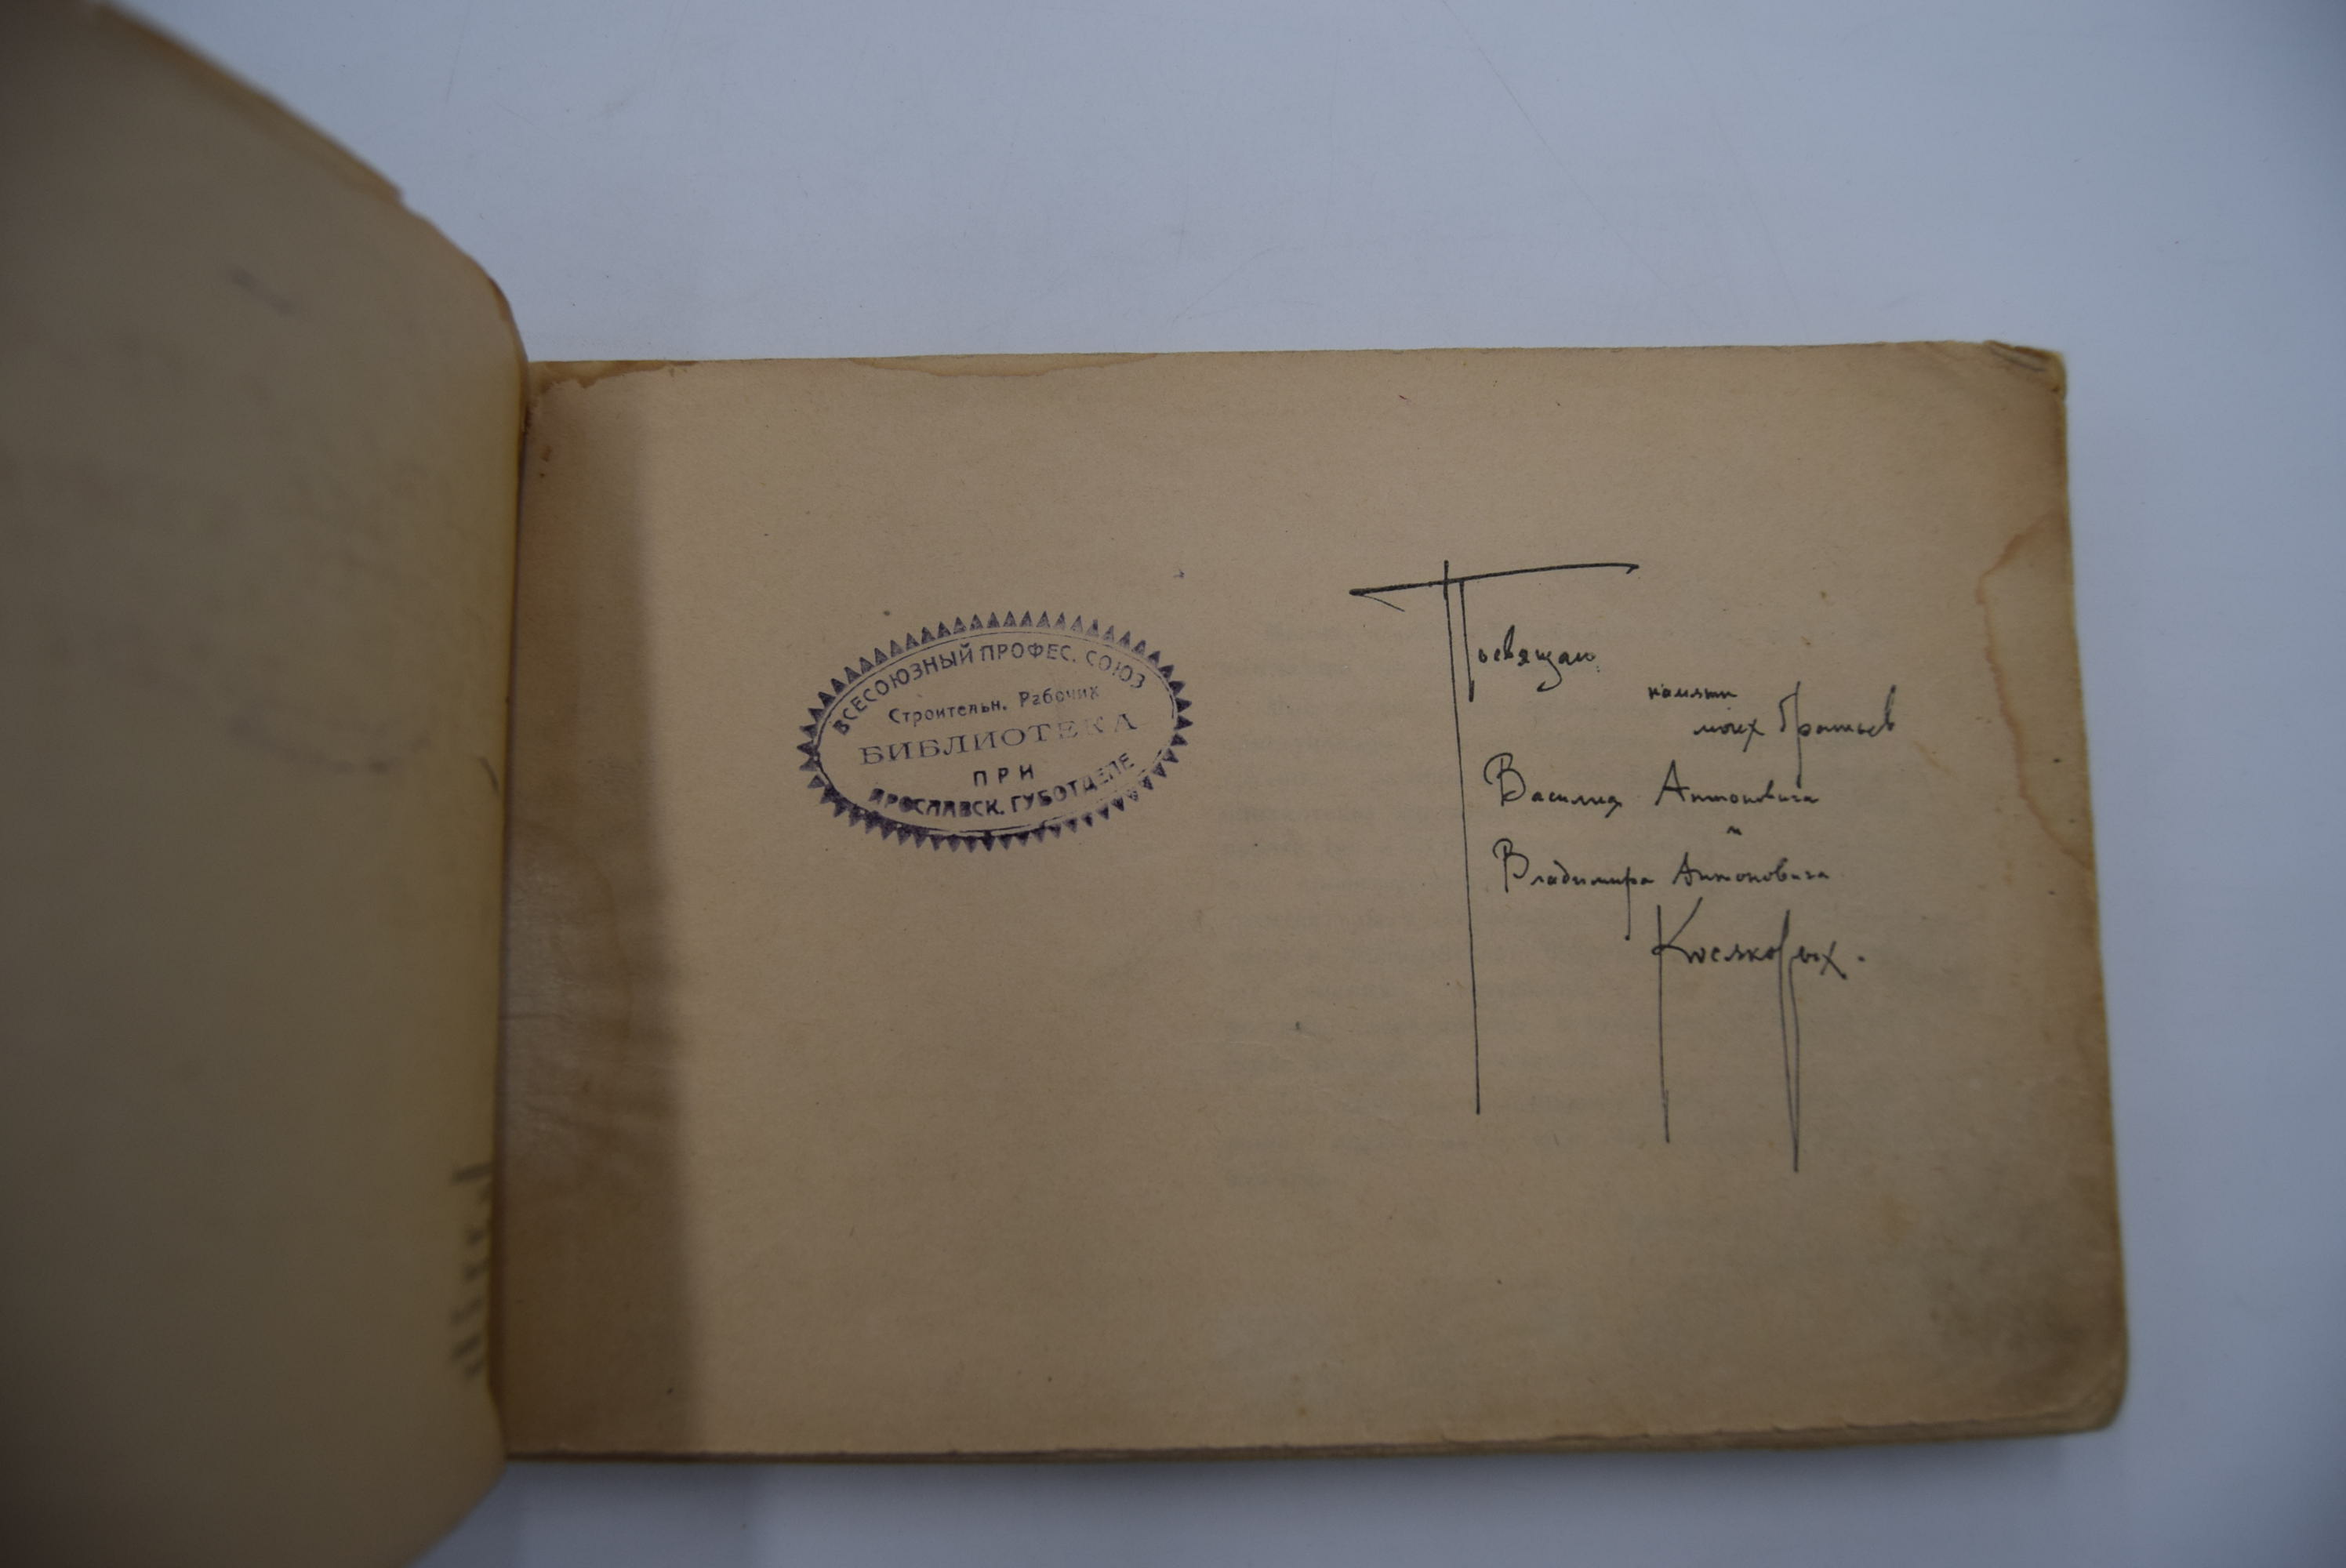 ВСЕСОЮЗНЫЙ ПРОФЕС. СОЮЗ
Строительн. Рабочих
БИБЛИОТЕКА
ПРИ
ЯРОСЛАВСК. ГУБОТДЕЛЕ
Посвящаю
памяти
моих братьев
Василия Антоновича
и
Владимира Антоновича
Косяковых.